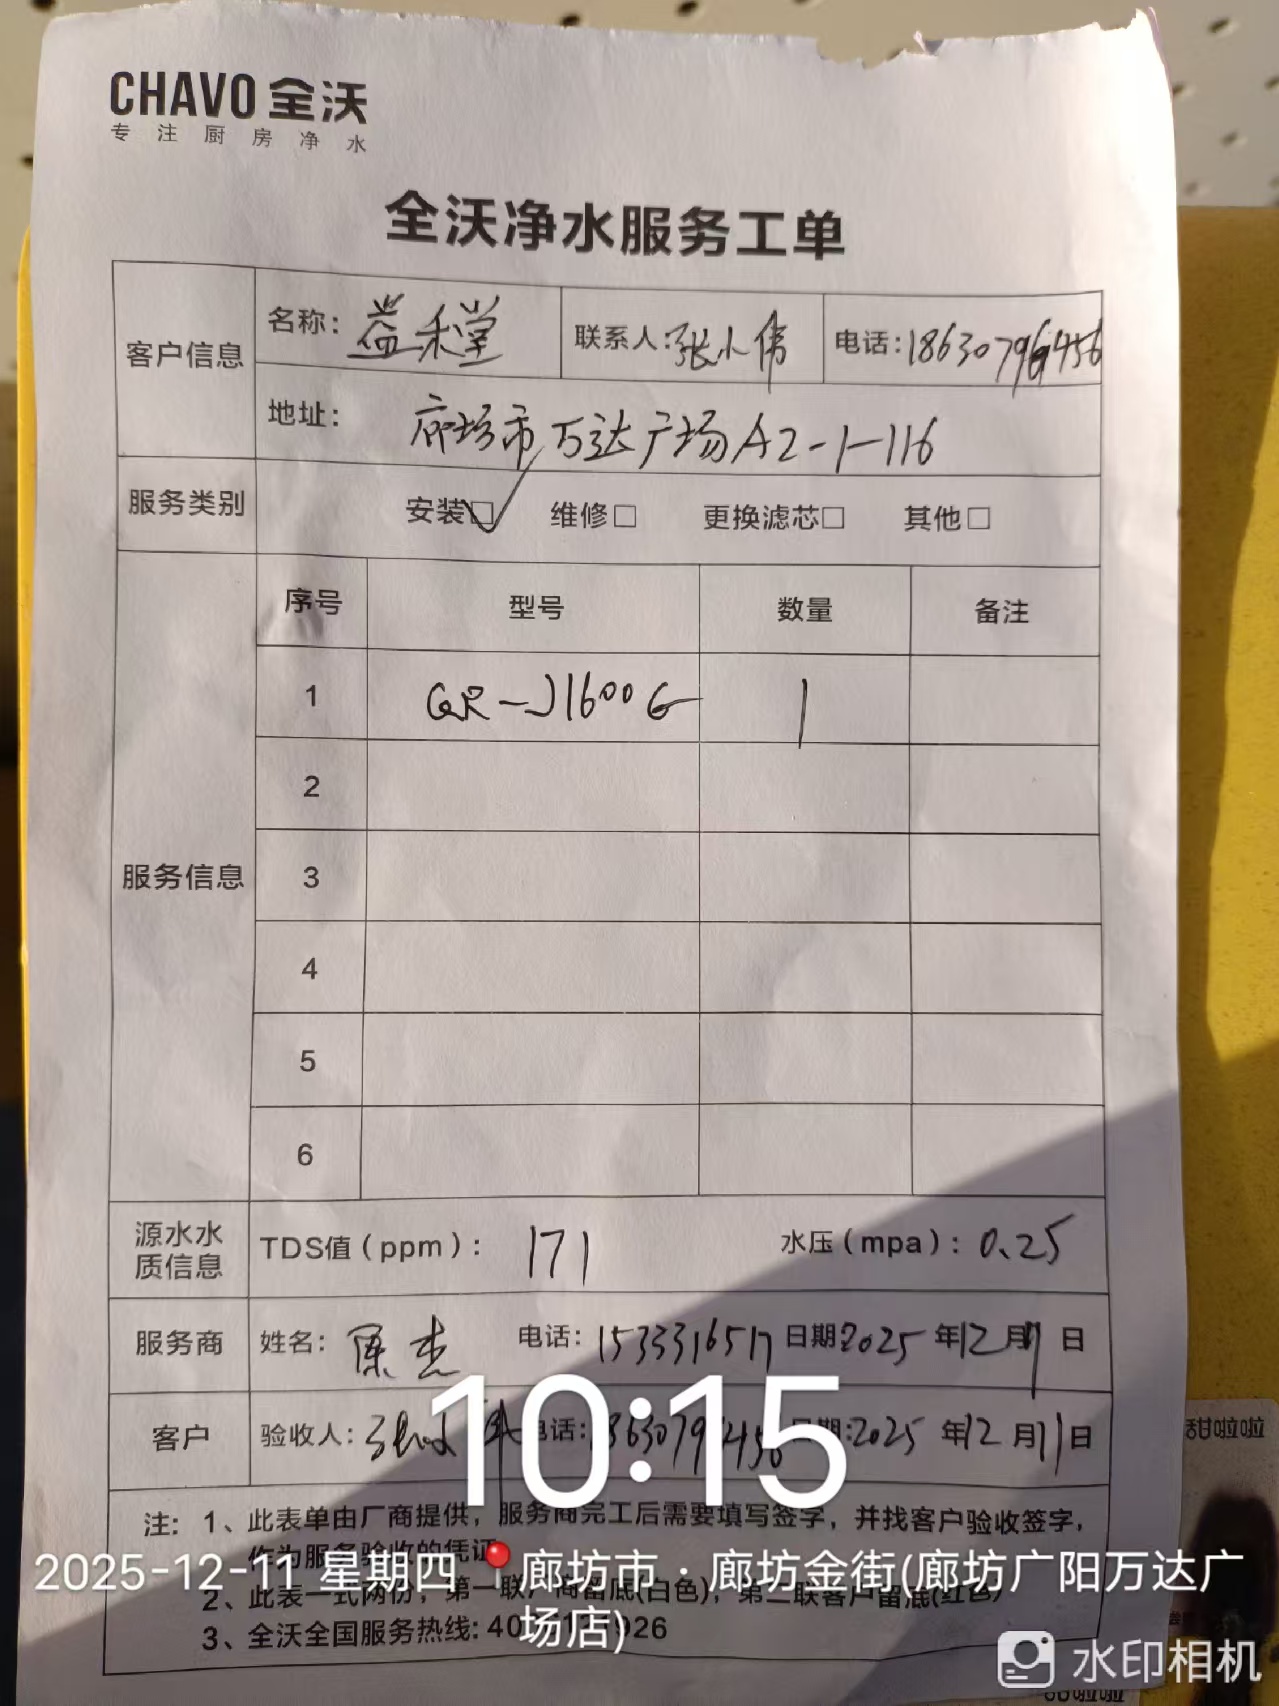 CHAVO 全沃
专注厨房净水
全沃净水服务工单
客户信息
名称: 益禾堂 联系人: 张小伟 电话: 18630796456
地址: 廊坊市万达广场A2-1-116
服务类别 安装☑ 维修□ 更换滤芯□ 其他□
服务信息
序号 型号 数量 备注
1 QR-J1600G 1
2
3
4
5
6
源水水质信息 TDS值(ppm): 171 水压(mpa): 0.25
服务商 姓名: 陈杰 电话: 15333316517 日期 2025年12月11日
客户 验收人: 张小伟 电话: 18630796456 日期: 2025年12月11日
10:15
注: 1、此表单由厂商提供, 服务商完工后需要填写签字, 并找客户验收签字,
作为服务验收的凭证
2、此表一式两份, 第一联厂商留底(白色), 第二联客户留底(红色)
3、全沃全国服务热线: 40 926
2025-12-11 星期四 廊坊市·廊坊金街(廊坊广阳万达广
场店)
水印相机
甜啦啦
甜啦啦